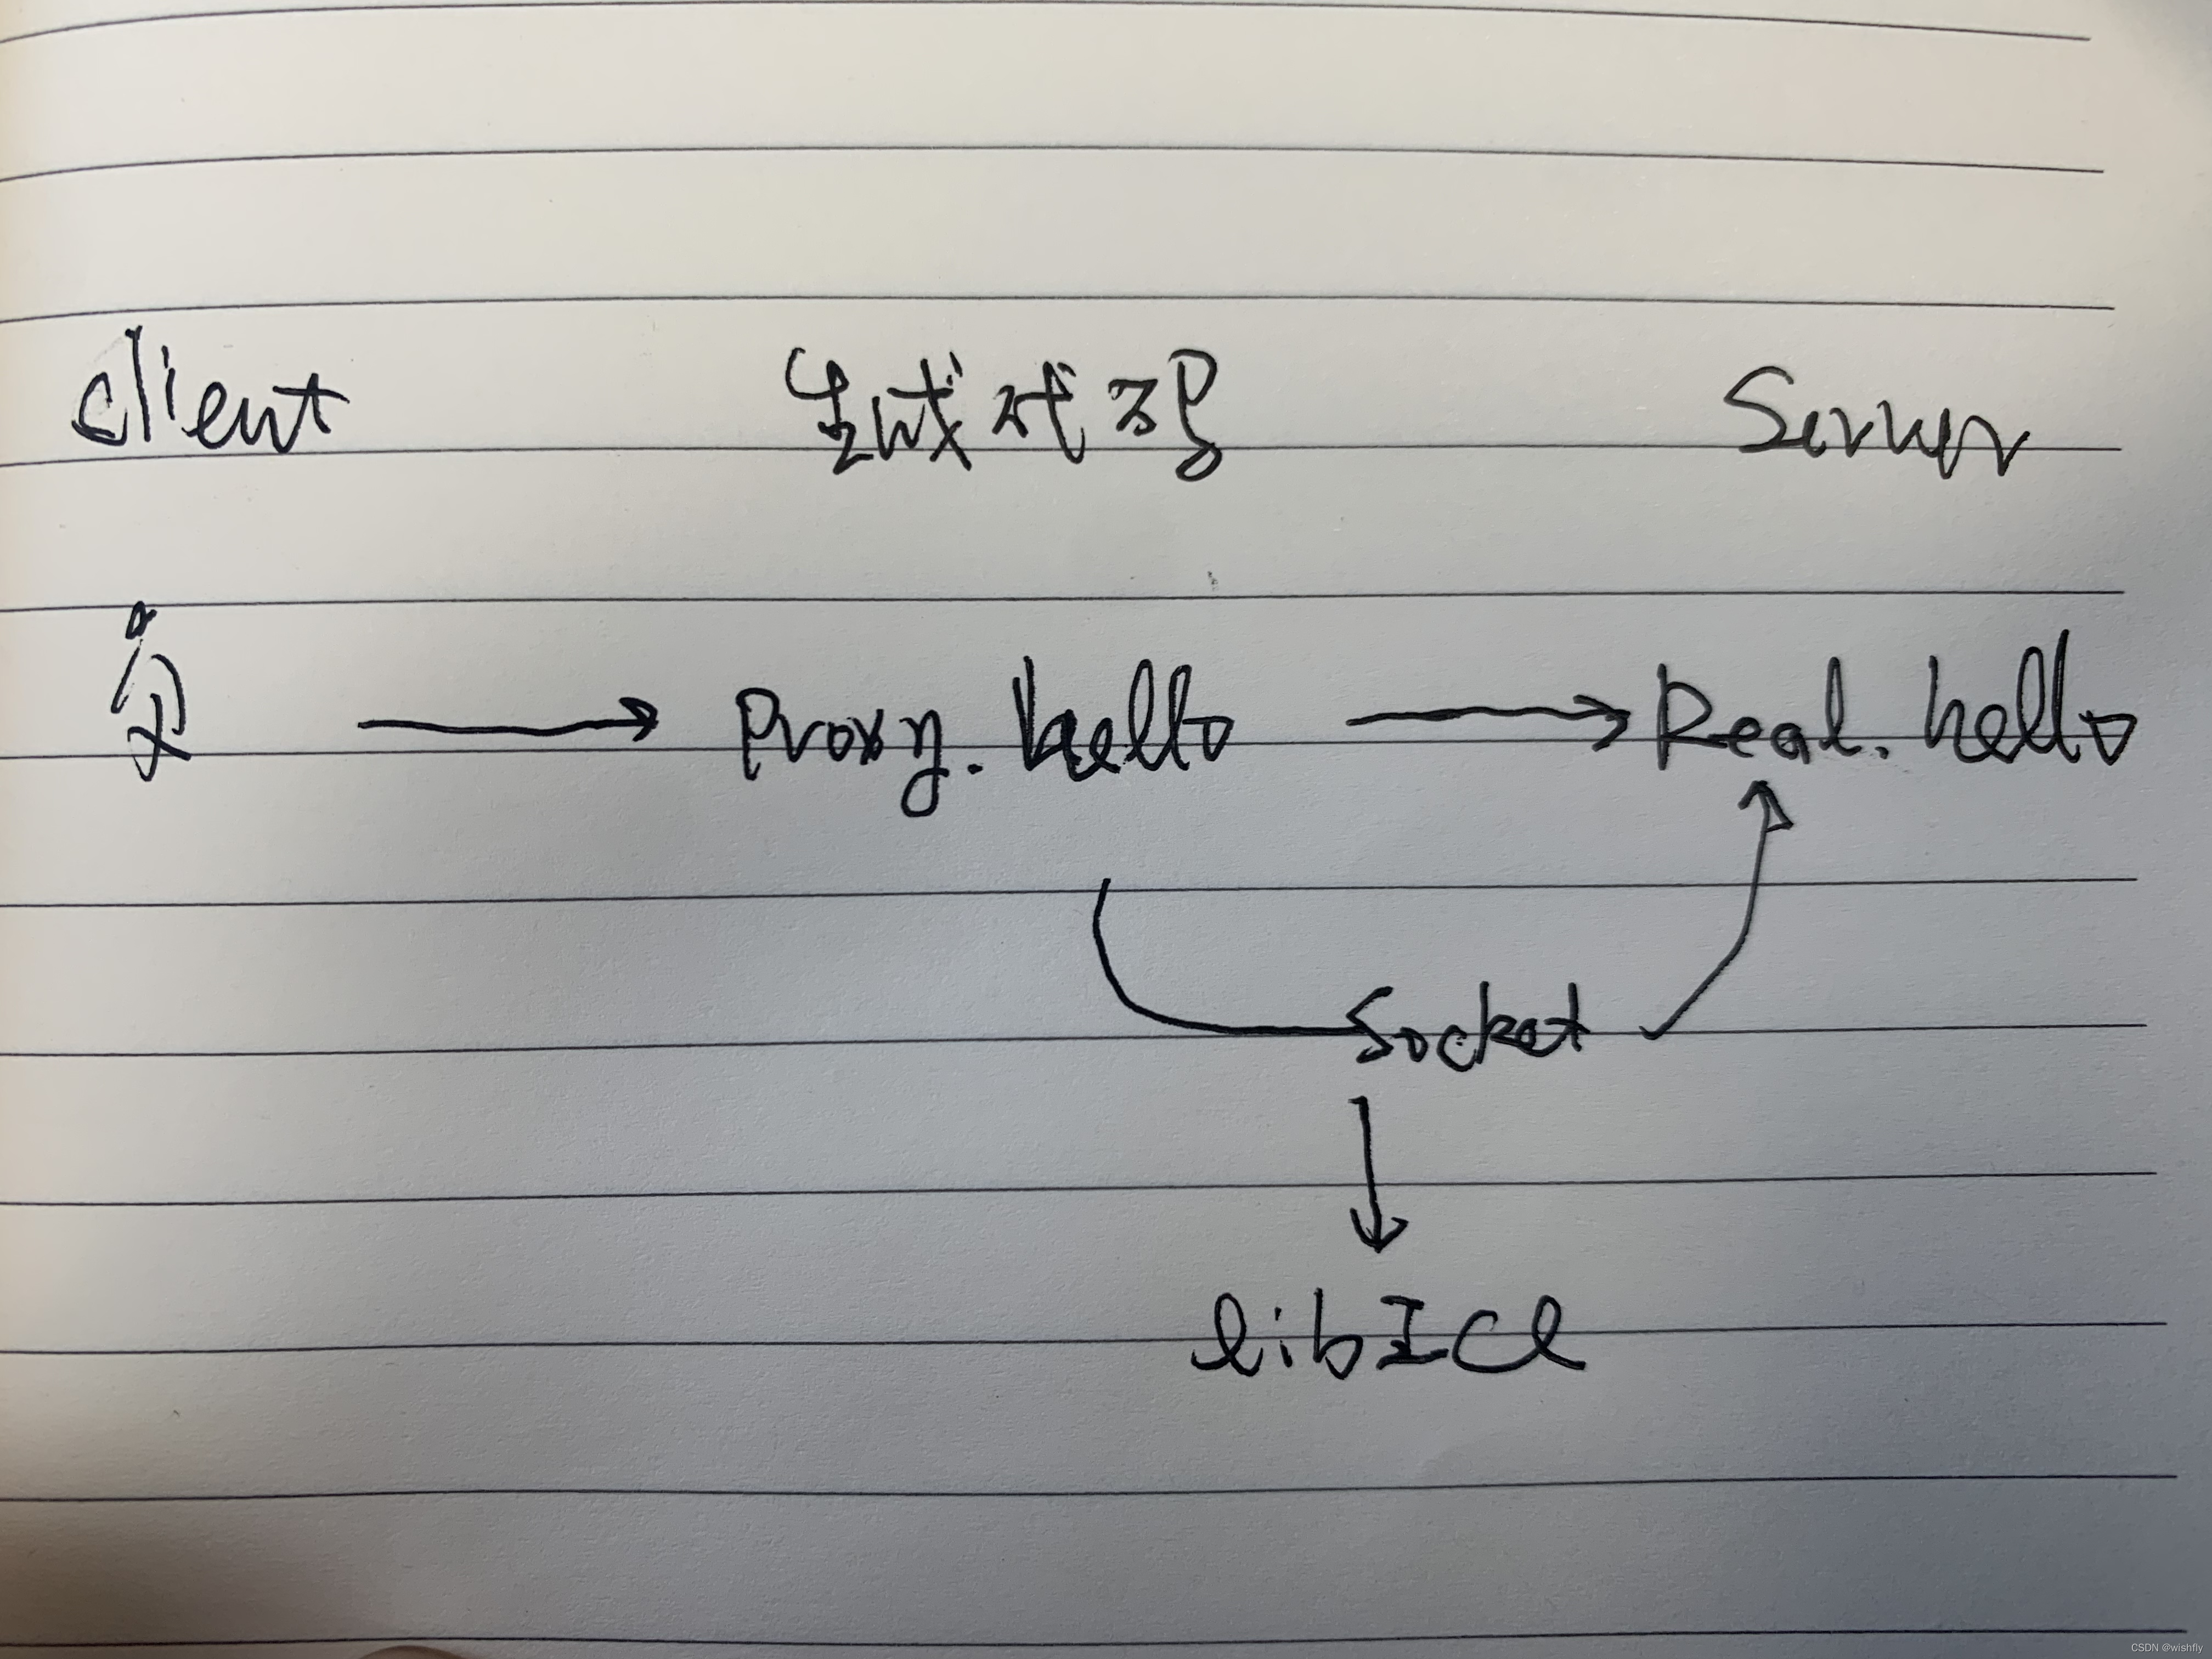 client 生成代码 Server
Proxy.hello Real.hello
Socket
libICe
CSDN @wishfly